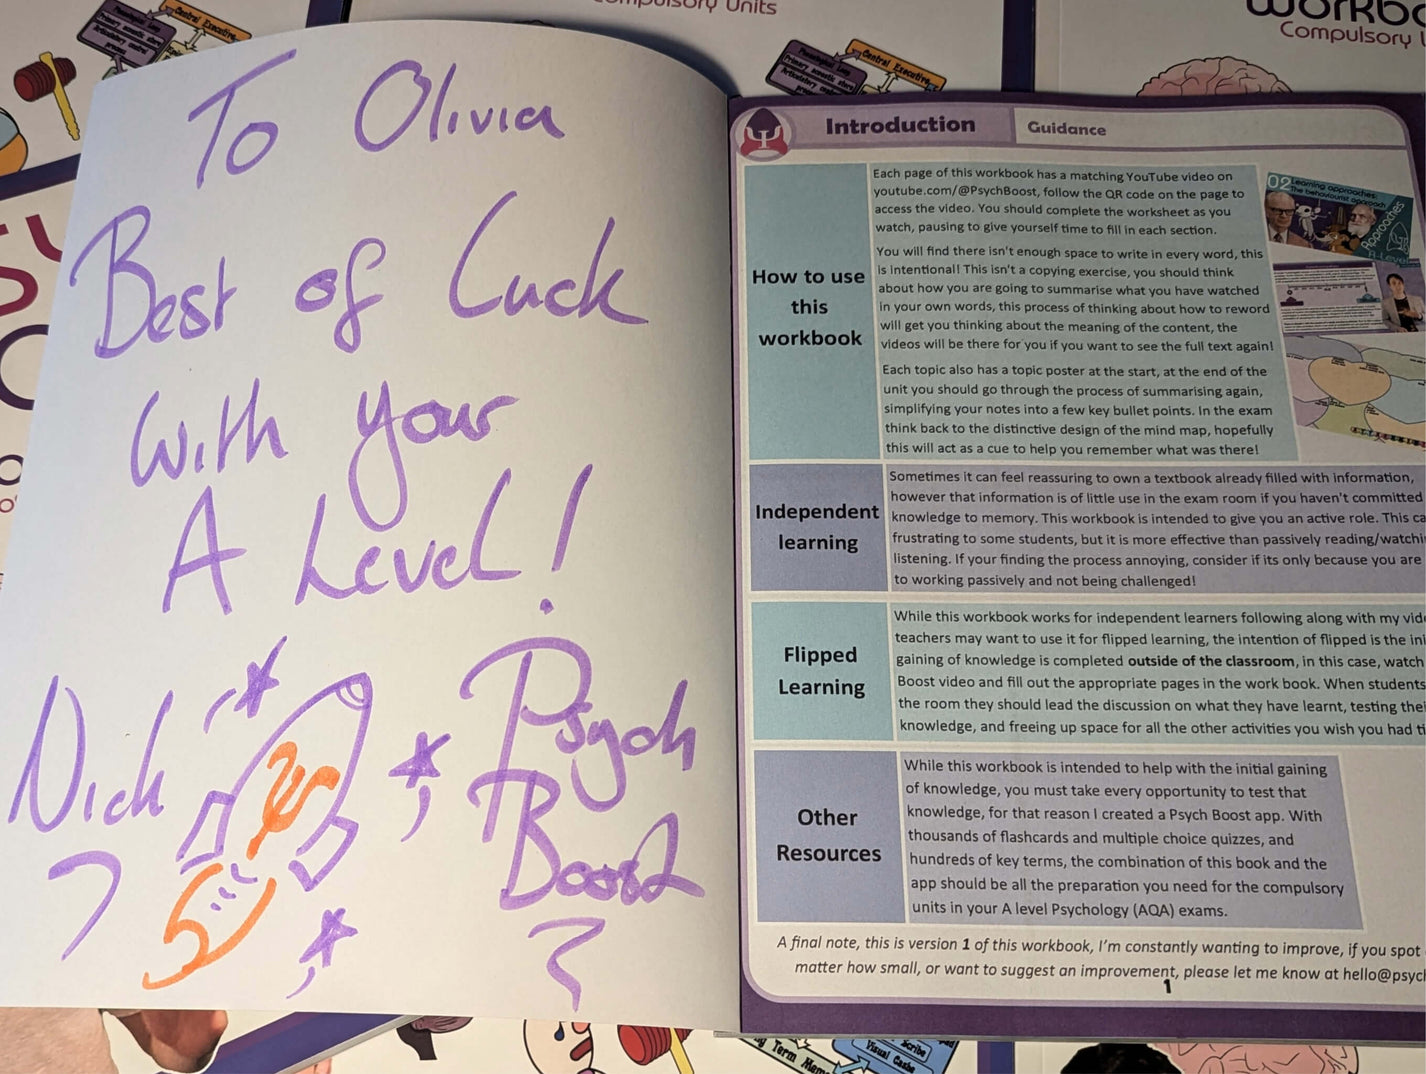 Compulsory Units
Workbo
Compulsory U
Phonological Loop
Primary acoustic store
Articulatory control
process
Central Executive
Phonological Loop
Primary acoustic store
Articulatory control
Central Executive
To Olivia
Best of Luck
with your
A Level!
Nick
Psych
Boost
Introduction
Guidance
How to use
this
workbook
Each page of this workbook has a matching YouTube video on
youtube.com/@PsychBoost, follow the QR code on the page to
access the video. You should complete the worksheet as you
watch, pausing to give yourself time to fill in each section.
You will find there isn't enough space to write in every word, this
is intentional! This isn't a copying exercise, you should think
about how you are going to summarise what you have watched
in your own words, this process of thinking about how to reword
will get you thinking about the meaning of the content, the
videos will be there for you if you want to see the full text again!
Each topic also has a topic poster at the start, at the end of the
unit you should go through the process of summarising again,
simplifying your notes into a few key bullet points. In the exam
think back to the distinctive design of the mind map, hopefully
this will act as a cue to help you remember what was there!
02 Learning approaches:
The behaviourist approach
Approaches
A-Level
Independent
learning
Sometimes it can feel reassuring to own a textbook already filled with information,
however that information is of little use in the exam room if you haven't committed
knowledge to memory. This workbook is intended to give you an active role. This ca
frustrating to some students, but it is more effective than passively reading/watchi
listening. If your finding the process annoying, consider if its only because you are
to working passively and not being challenged!
Flipped
Learning
While this workbook works for independent learners following along with my vid
teachers may want to use it for flipped learning, the intention of flipped is the ini
gaining of knowledge is completed outside of the classroom, in this case, watch
Boost video and fill out the appropriate pages in the work book. When students
the room they should lead the discussion on what they have learnt, testing thei
knowledge, and freeing up space for all the other activities you wish you had ti
Other
Resources
While this workbook is intended to help with the initial gaining
of knowledge, you must take every opportunity to test that
knowledge, for that reason I created a Psych Boost app. With
thousands of flashcards and multiple choice quizzes, and
hundreds of key terms, the combination of this book and the
app should be all the preparation you need for the compulsory
units in your A level Psychology (AQA) exams.
A final note, this is version 1 of this workbook, I'm constantly wanting to improve, if you spot
matter how small, or want to suggest an improvement, please let me know at hello@psycl
1
Term Mem
Scribe
Visual Cache